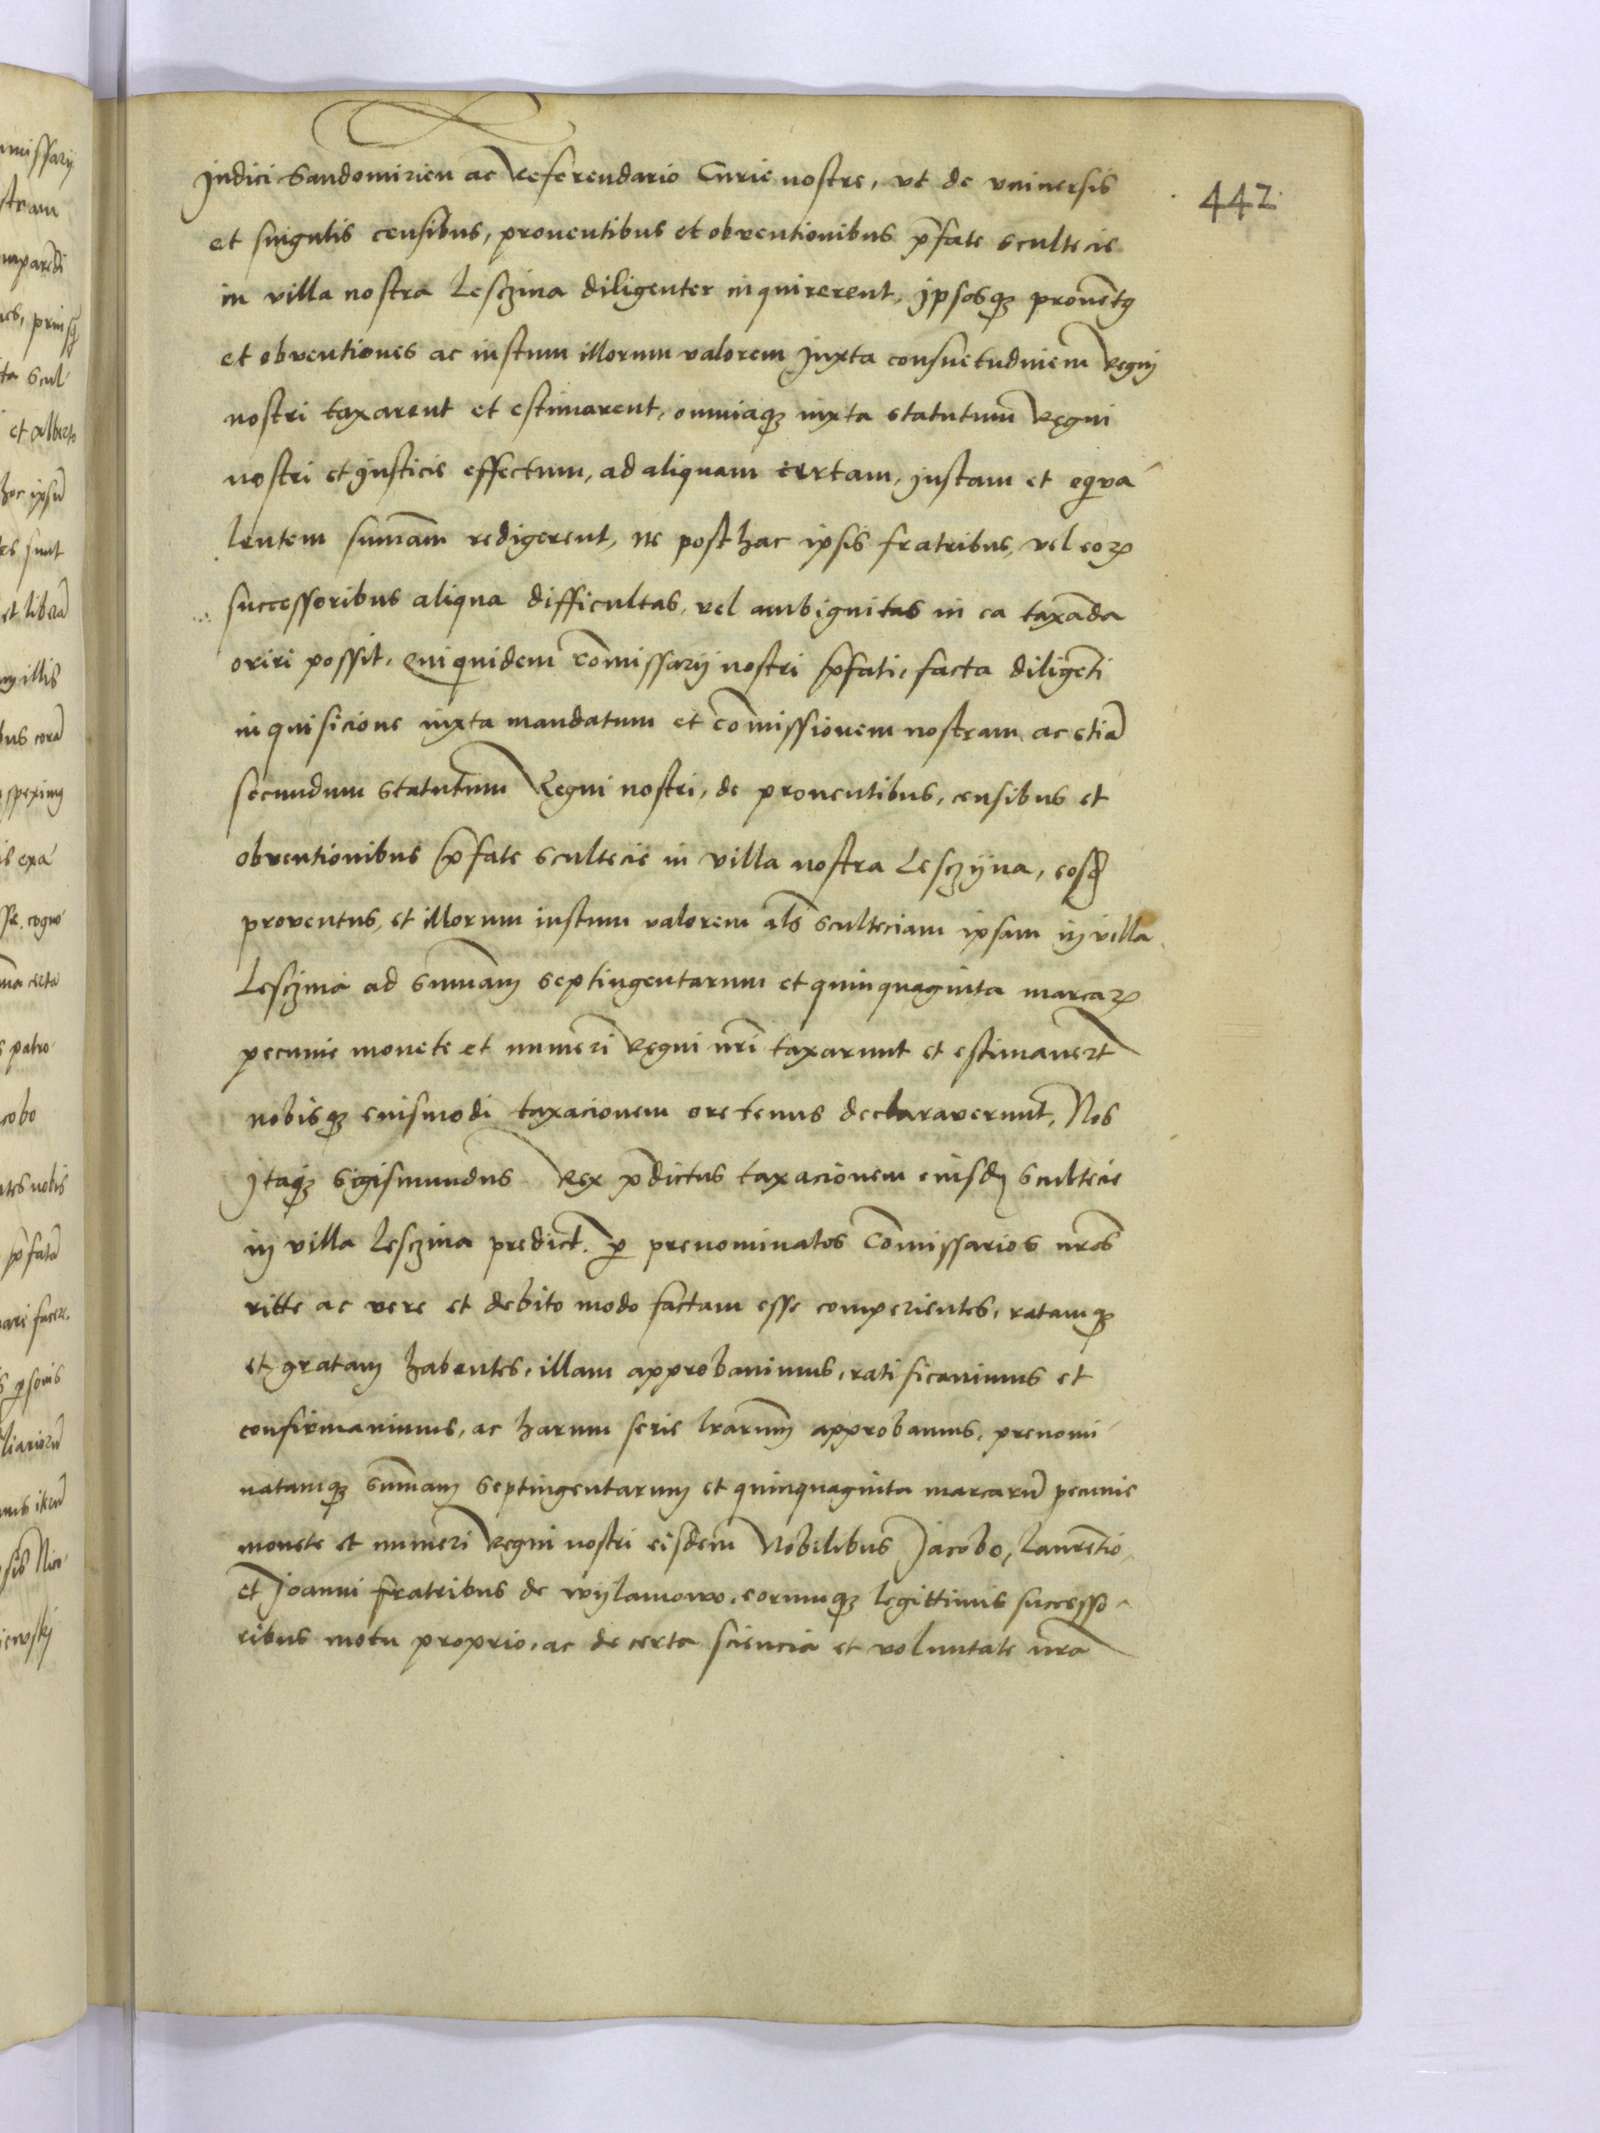 442
Judici Sandomirien ac Referendario Curie nostre, vt de vniuersis
et singulis censibus, prouentibus et obventionibus p̄fate scultecie
in villa nostra Lesczina diligenter inquirerent, ipsosq3 prouent9
et obventiones ac iustum illorum valorem Juxta consuetudinem Regnj
nostri taxarent et estimarent, omniaq3 iuxta statutum Regni
nostri et Justicie effectum, ad aliquam certam, Justam et equiva-
lentem sum̄am redigerent, ne posthac ipsis fratribus, vel eoꝝ
successoribus aliqua difficultas, vel ambiguitas in ea taxāda
oriri possit, Quiquidem Com̄issarij nostri p̄fati, facta diligēti
inquisicione iuxta mandatum et com̄issionem nostram, ac etiā
secundum statutum Regni nostri, de prouentibus, censibus et
obventionibus p̄fate scultecie in villa nostra Lesczyna, eosd̄
proventus, et illorum iustum valorem al̄s sculteciam ipsam in villa
Lesczina ad sum̄am septingentarum et quinquaginta marcaꝝ
pecunie monete et numeri Regni nr̄i taxarunt et estimauer̄t
nobisq3 euismodi taxacionem oretenus declaraverunt, Nos
Itaq3 Sigismundus Rex p̄dictus taxacionem eiusd̄ scultecie
in villa Lesczina predict. ꝑ prenominatos Com̄issarios nr̄os
ritte ac vere et debito modo factam esse comperientes, ratamq3
et gratam habentes, illam approbauimus, ratificauimus et
confirmauimus, ac harum serie lr̄arum approbamus, prenomi-
natamq3 sum̄am septingentarum et quinquaginta marcarū pecunie
monete et numeri Regni nostri eisdem Nobilibus Jacobo, Laurētio
et Joanni fratribus de wylamowo, eorumq3 legittimis successo-
ribus motu proprio, ac de certa sciencia et voluntate nr̄a